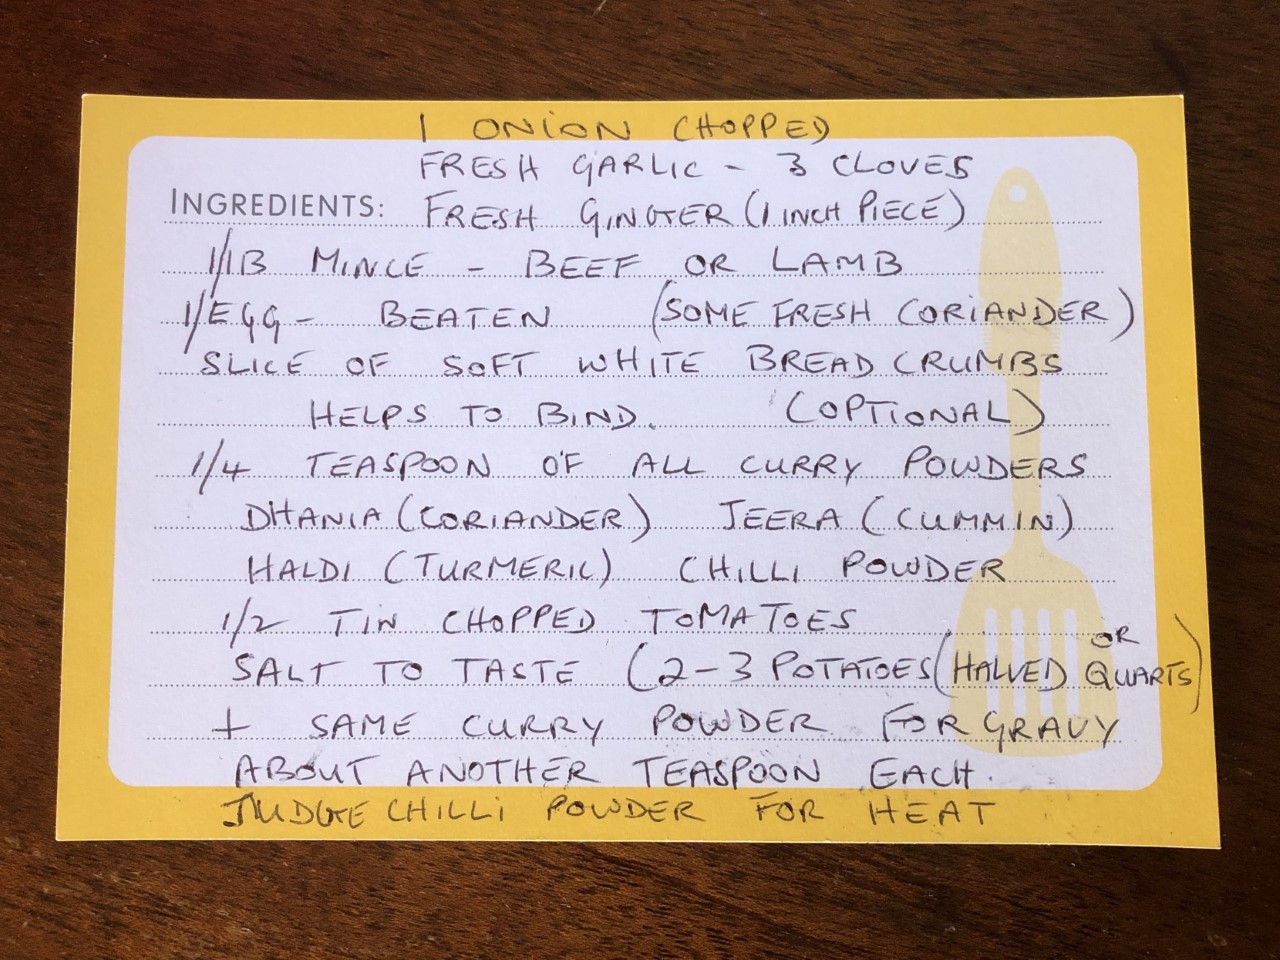 1 ONION CHOPPED
FRESH GARLIC - 3 CLOVES
INGREDIENTS: FRESH GINGER (1 INCH PIECE)
1/1B MINCE - BEEF OR LAMB
1/EGG - BEATEN (SOME FRESH CORIANDER)
SLICE OF SOFT WHITE BREAD CRUMBS
HELPS TO BIND. (OPTIONAL)
1/4 TEASPOON OF ALL CURRY POWDERS
DHANIA (CORIANDER) JEERA (CUMMIN)
HALDI (TURMERIC) CHILLI POWDER
1/2 TIN CHOPPED TOMATOES
SALT TO TASTE (2-3 POTATOES (HALVED OR QUARTS)
+ SAME CURRY POWDER FOR GRAVY
ABOUT ANOTHER TEASPOON EACH.
JUDGE CHILLI POWDER FOR HEAT